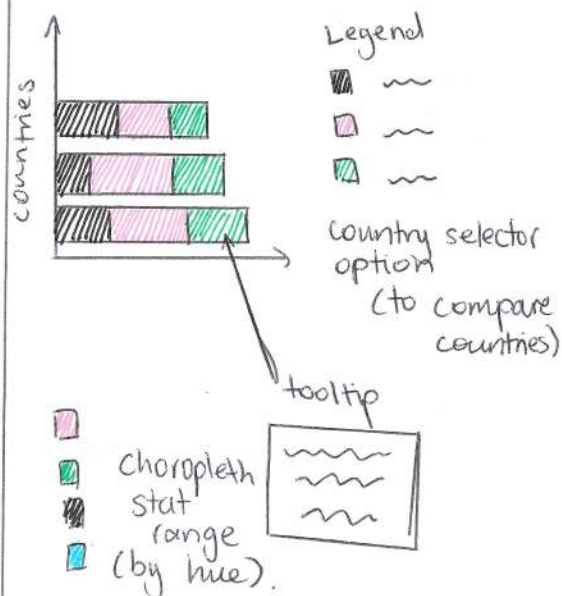 countries
Legend
country selector
option
(to compare
countries)
tooltip
Choropleth
stat
range
(by hue).